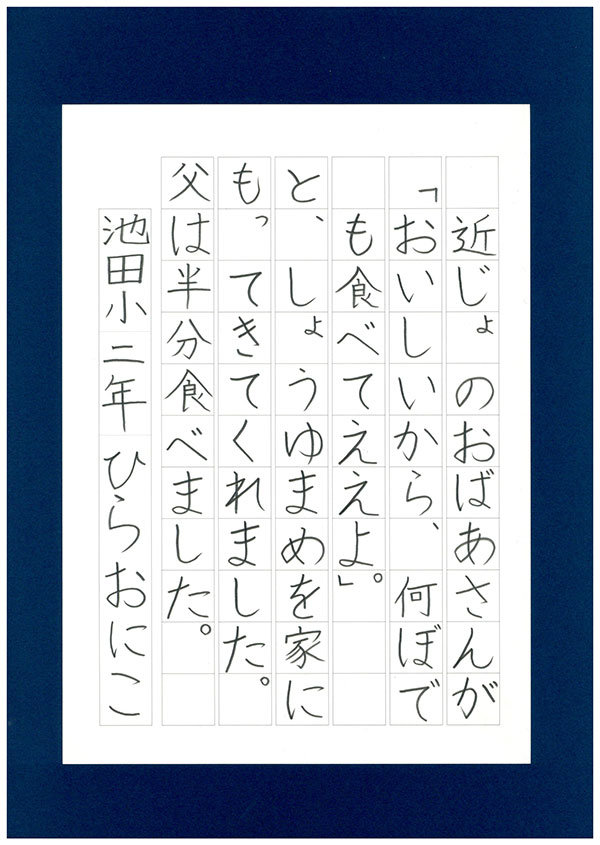 近じょのおばあさんが
「おいしいから、何ぼで
も食べてええよ」。
と、しょうゆまめを家に
もってきてくれました。
父は半分食べました。
池田小二年 ひらおにこ